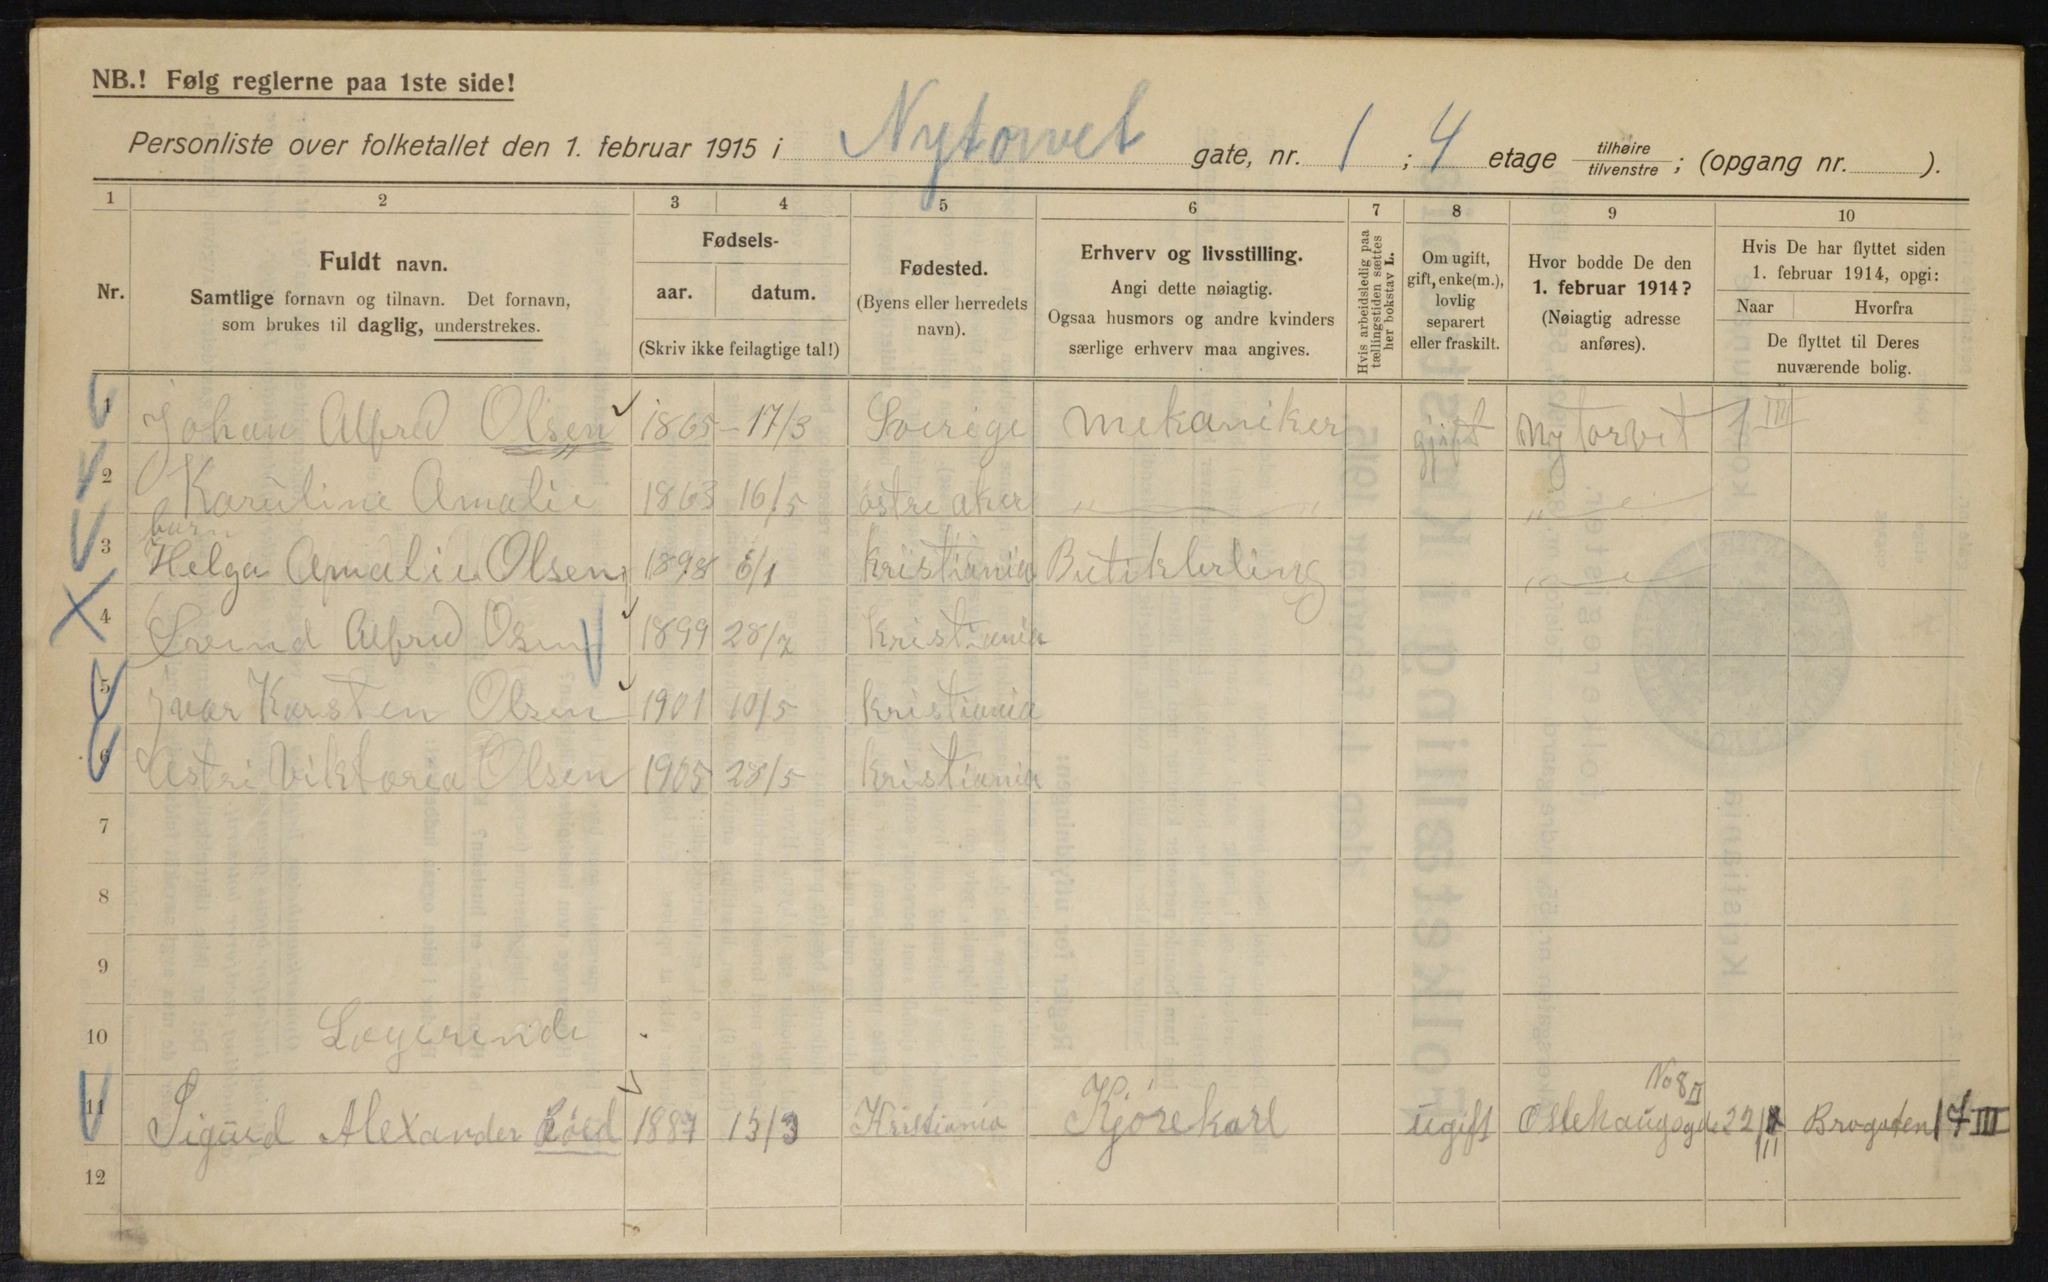 NB.! Følg reglerne paa 1ste side!
Personliste over folketallet den 1. februar 1915 i Nytorvet gate, nr. 1 ; 4 etage tilhøire / tilvenstre ; (opgang nr. ........ ).
1 2 3 4 5 6 7 8 9 10
Nr.
Fuldt navn.
Samtlige fornavn og tilnavn. Det fornavn,
som brukes til daglig, understrekes.
Fødsels-
aar. datum.
(Skriv ikke feilagtige tal!)
Fødested.
(Byens eller herredets
navn).
Erhverv og livsstilling.
Angi dette nøiagtig.
Ogsaa husmors og andre kvinders
særlige erhverv maa angives.
Hvis arbeidsledig paa
tællingstiden sættes
her bokstav L.
Om ugift,
gift, enke(m.),
lovlig
separert
eller fraskilt.
Hvor bodde De den
1. februar 1914?
(Nøiagtig adresse
anføres).
Hvis De har flyttet siden
1. februar 1914, opgi:
Naar Hvorfra
De flyttet til Deres
nuværende bolig.
1 Johan Alfred Olsen 1865 17/3 Sverige mekaniker gift Nytorvet 1 III
2 Karoline Amalie 1863 16/5 østre aker " " "
barn
3 Helga Amalie Olsen 1898 6/1 kristiania Butiklerling "
4 Svend Alfred Osen 1899 28/7 kristiania
5 Ivar Karsten Olsen 1901 10/5 kristiania
6 Astri Viktoria Olsen 1905 28/5 kristiania
7
8
9
10 Logerende
No 8 II
11 Sigurd Alexander 1887 13/3 Kristiania Kjørekarl ugift Brogaten 17 III
12